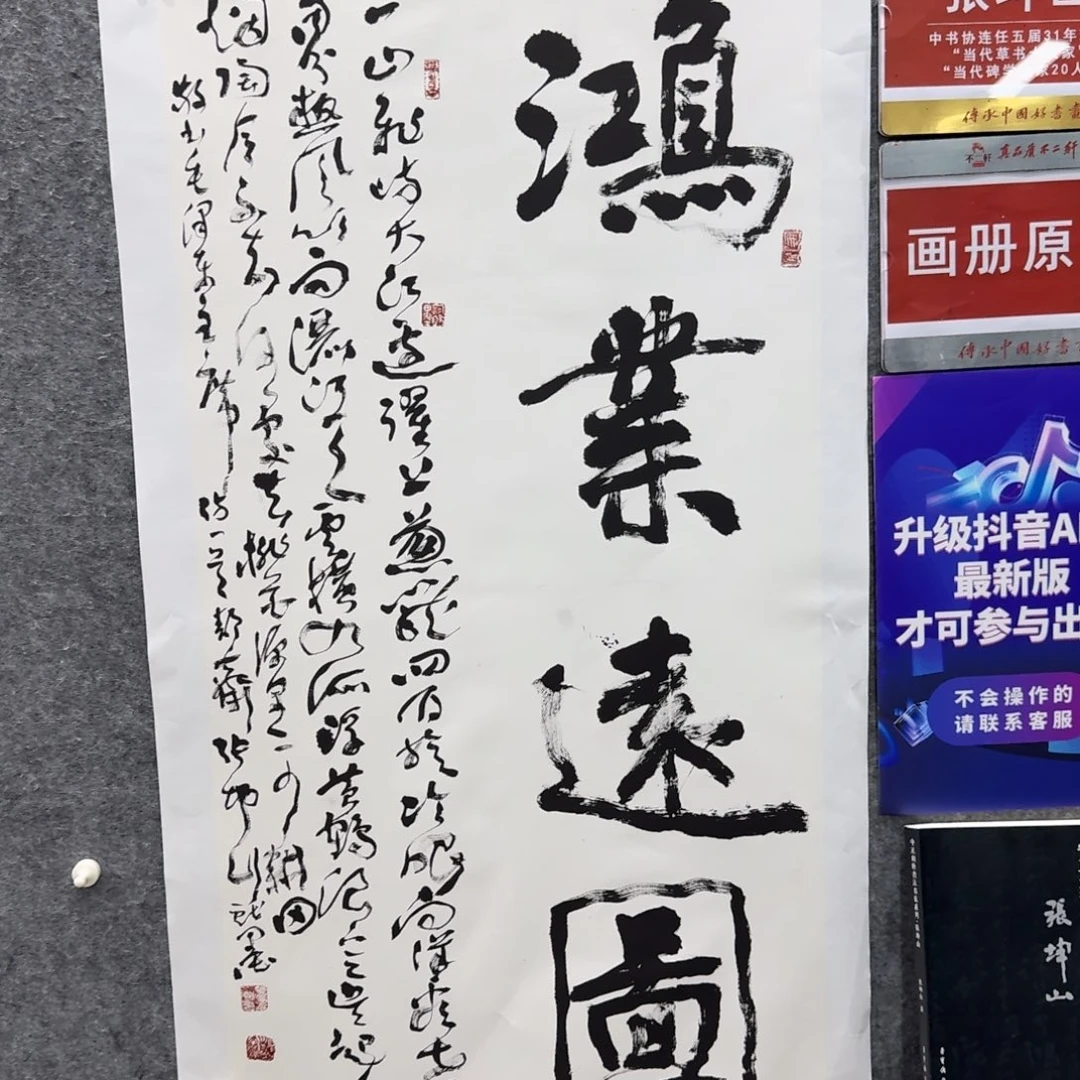 鴻業遠圖
一山飛峙大江邊躍上葱蘢四百旋冷眼向洋看世
界熱風吹雨灑江天雲橫九派浮黃鶴浪下三吳起
烟陶令不知何處去桃花源里可耕田
敬书毛澤东主席诗一首
张坤山试墨
中书协连任五届31年
“当代草书
“当代碑学 家20人
傳承中国好書畫
不二軒
真品質不二軒
画册原
傳承中国好書畫
升级抖音A
最新版
才可参与出
不会操作的
请联系客服
張坤山